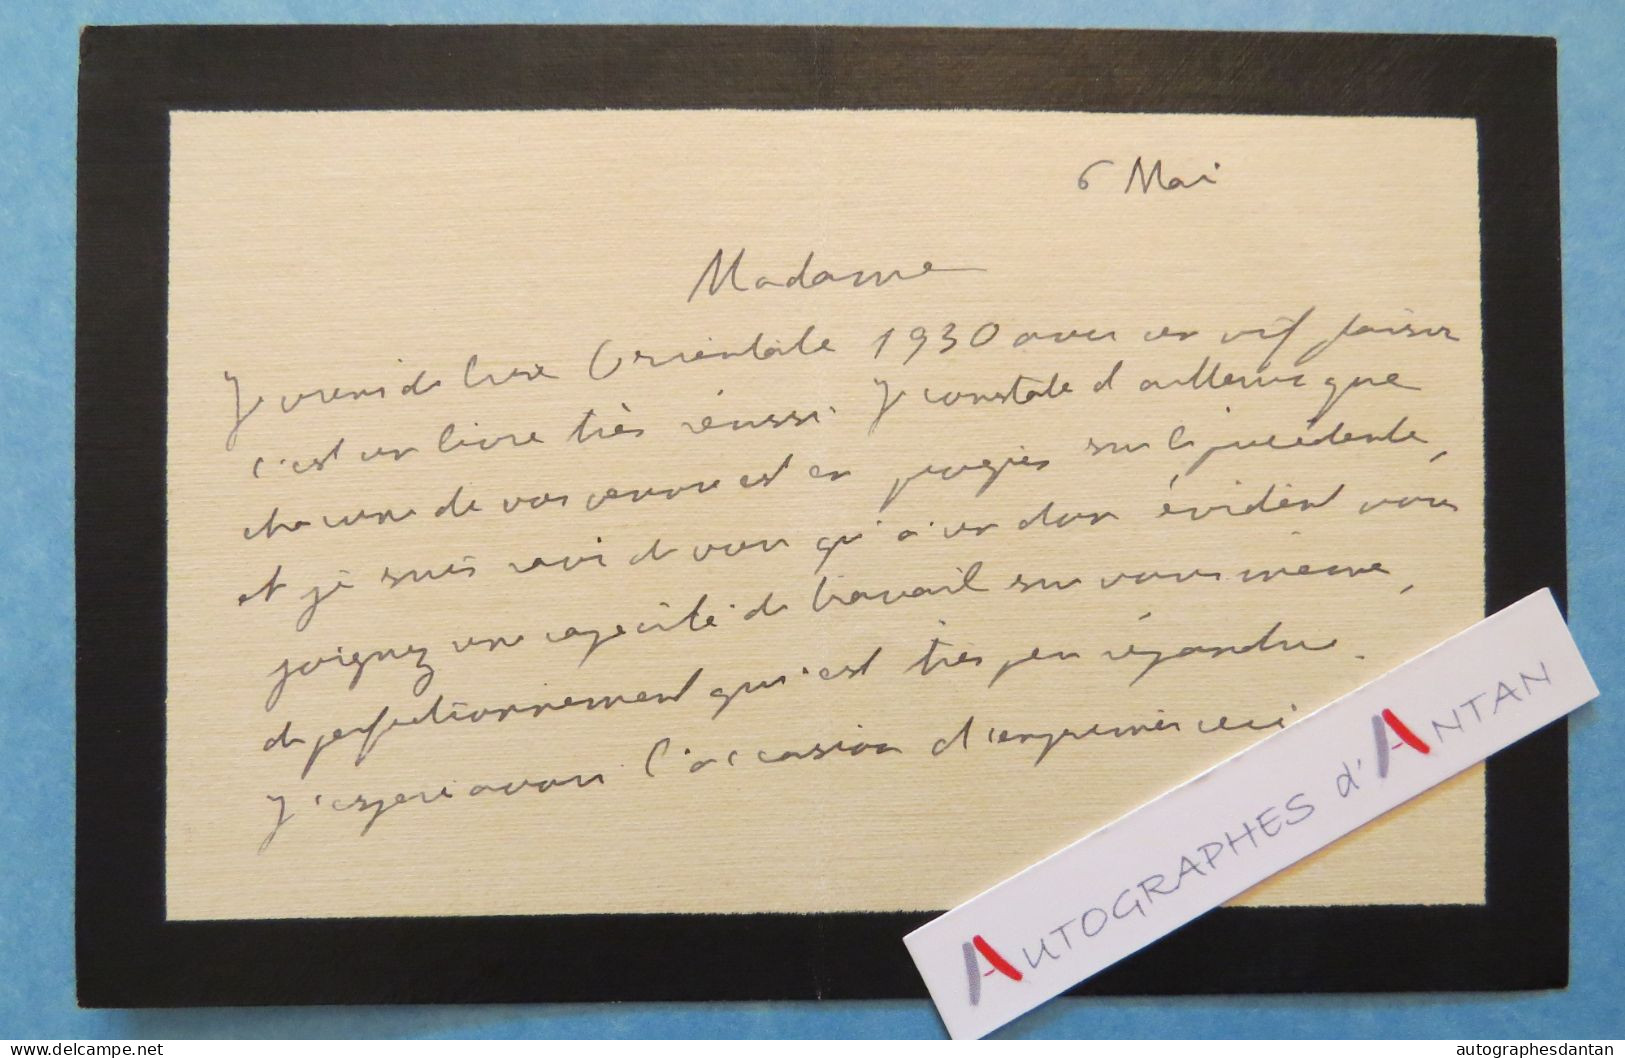 6 Mai
Madame
Je viens de lire Orientale 1930 avec un vif plaisir
c'est un livre très réussi. Je constate d'ailleurs que
chacune de vos œuvres est en progrès sur la précédente,
et je suis ravi de vous qui à un don évident vous
joignez une capacité de travail sur vous même,
de perfectionnement qui est très peu répandue.
J'espère avoir l'occasion d'exprimer ceci
AUTOGRAPHES d'ANTAN
delcampe.net
autographesdantan